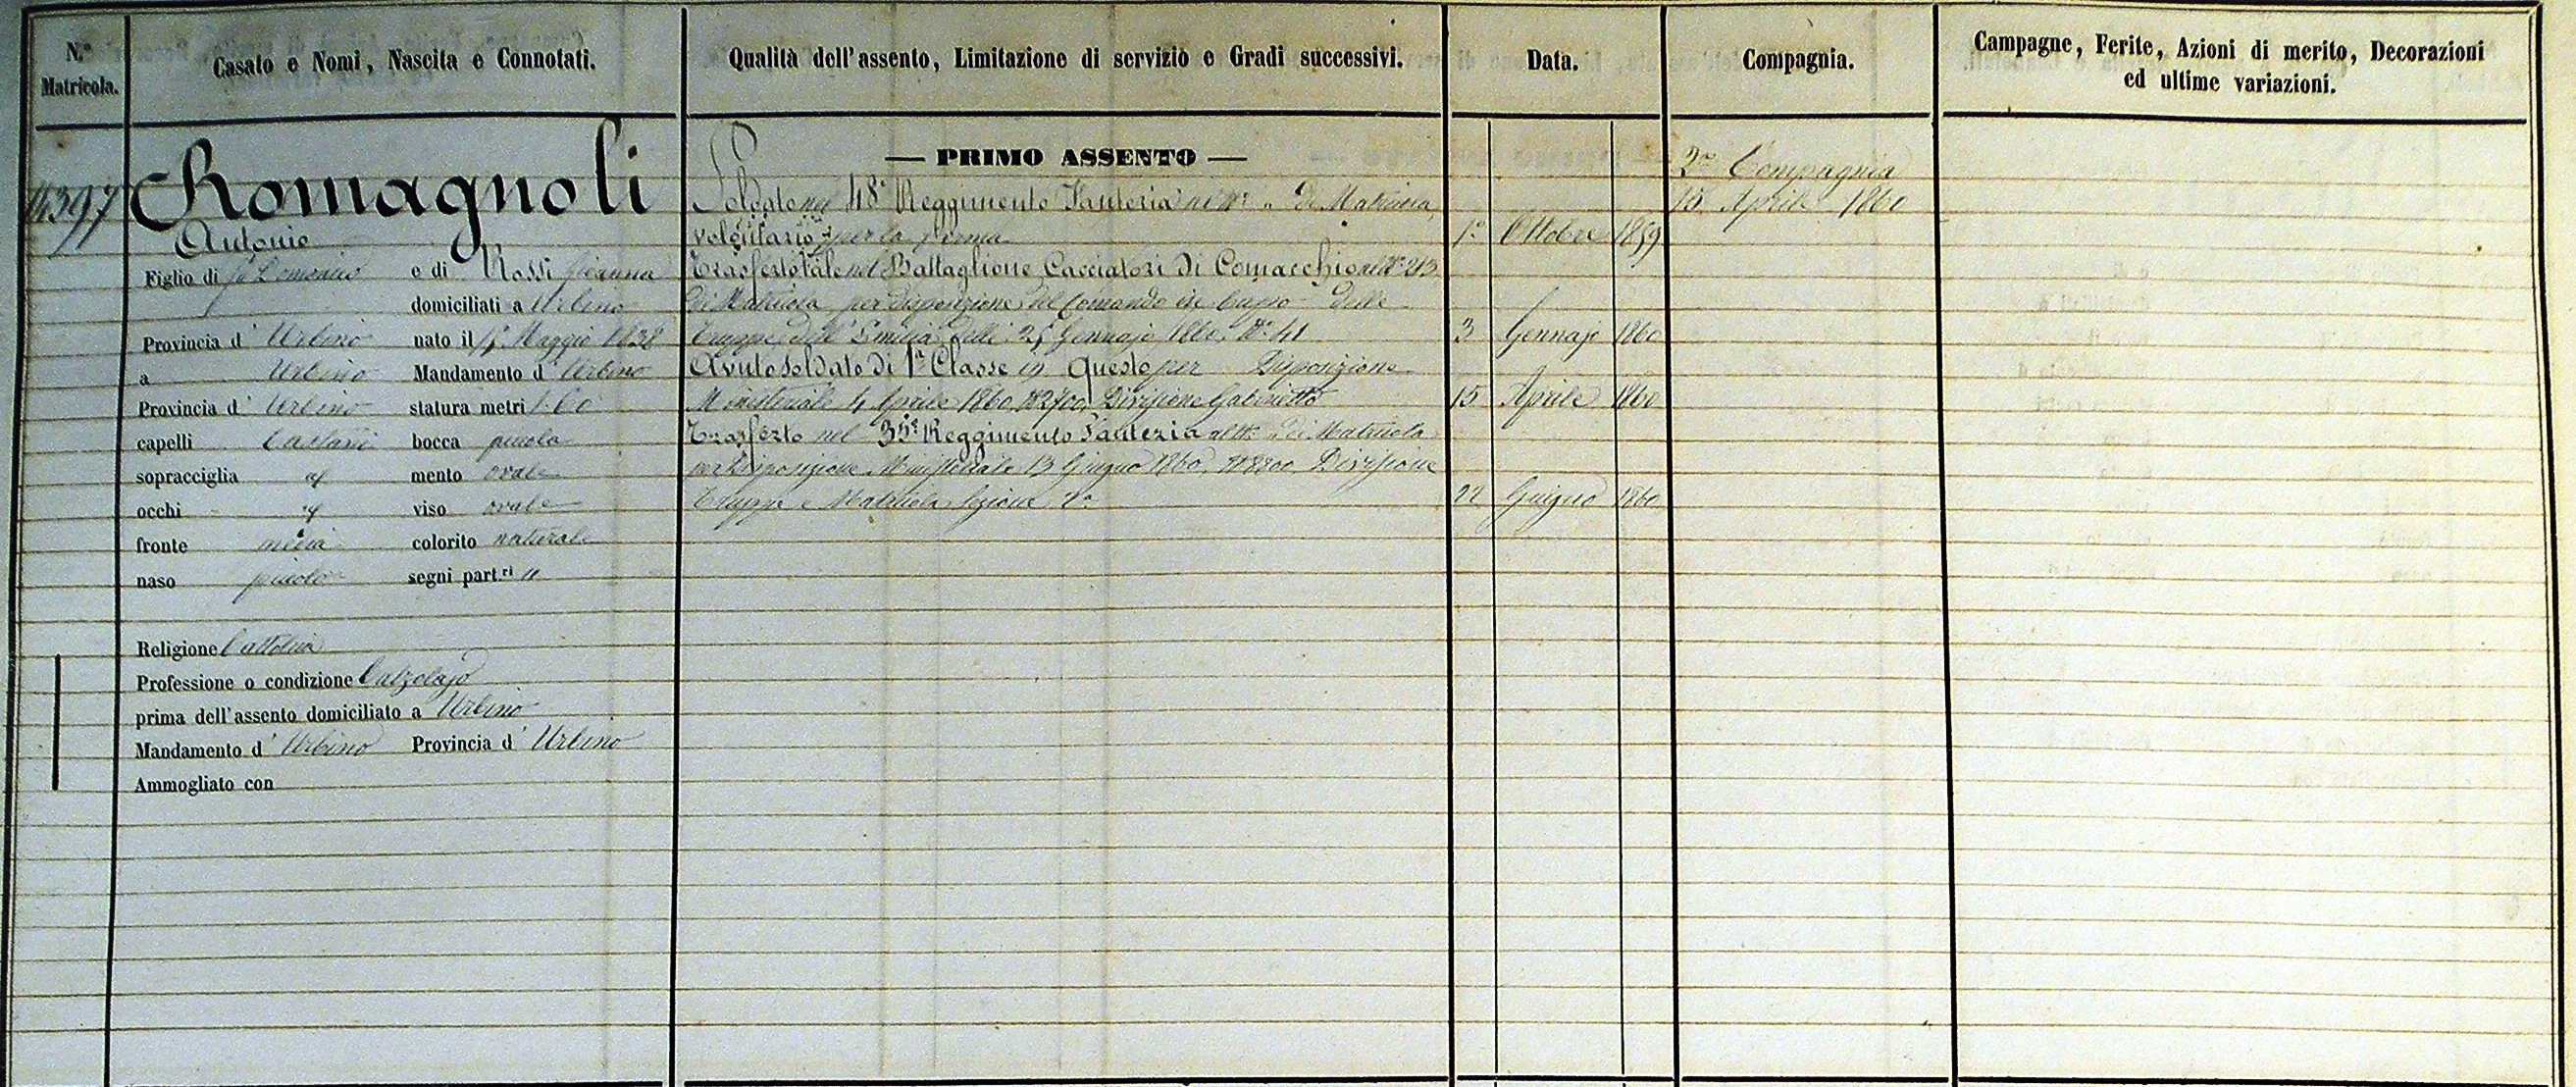 N.º Matricola.
Casato e Nomi, Nascita e Connotati.
Qualità dell'assento, Limitazione di servizio e Gradi successivi.
Data.
Compagnia.
Campagne, Ferite, Azioni di merito, Decorazioni
ed ultime variazioni.
14397
Romagnoli
Antonio
Figlio di fu Domenico e di Rossi Gioanna
domiciliati a Urbino
Provincia d' Urbino nato il Maggio 1838
a Urbino Mandamento d' Urbino
Provincia d' Urbino statura metri 1.60
capelli Castani bocca piccola
sopracciglia mento ovale
occhi viso ovale
fronte media colorito naturale
naso piccolo segni part.ri "
Religione Cattolica
Professione o condizione Calzolajo
prima dell'assento domiciliato a Urbino
Mandamento d' Urbino Provincia d' Urbino
Ammogliato con
— PRIMO ASSENTO —
Soldato nel 48º Reggimento Fanteria al Nº " di Matricola
volontario per la ferma 1º Ottobre 1859
Trasferto tale nel Battaglione Cacciatori di Comacchio al Nº 213
di Matricola per disposizione del Comando in Capo delle
Truppe dell' Emilia delli 25 Gennajo 1860, Nº 41 3 Gennajo 1860
Avuto soldato di 1ª Classe in Questo per Disposizione
Ministeriale 4 Aprile 1860 Nº 2700, Divisione Gabinetto 15 Aprile 1860
Trasferto nel 35º Reggimento Fanteria al Nº " di Matricola
per Disposizione Ministeriale 13 Giugno 1860, Nº 8200 Divisione
Truppe e Matricola Sezione 22 Giugno 1860
2ª Compagnia
15 Aprile 1860